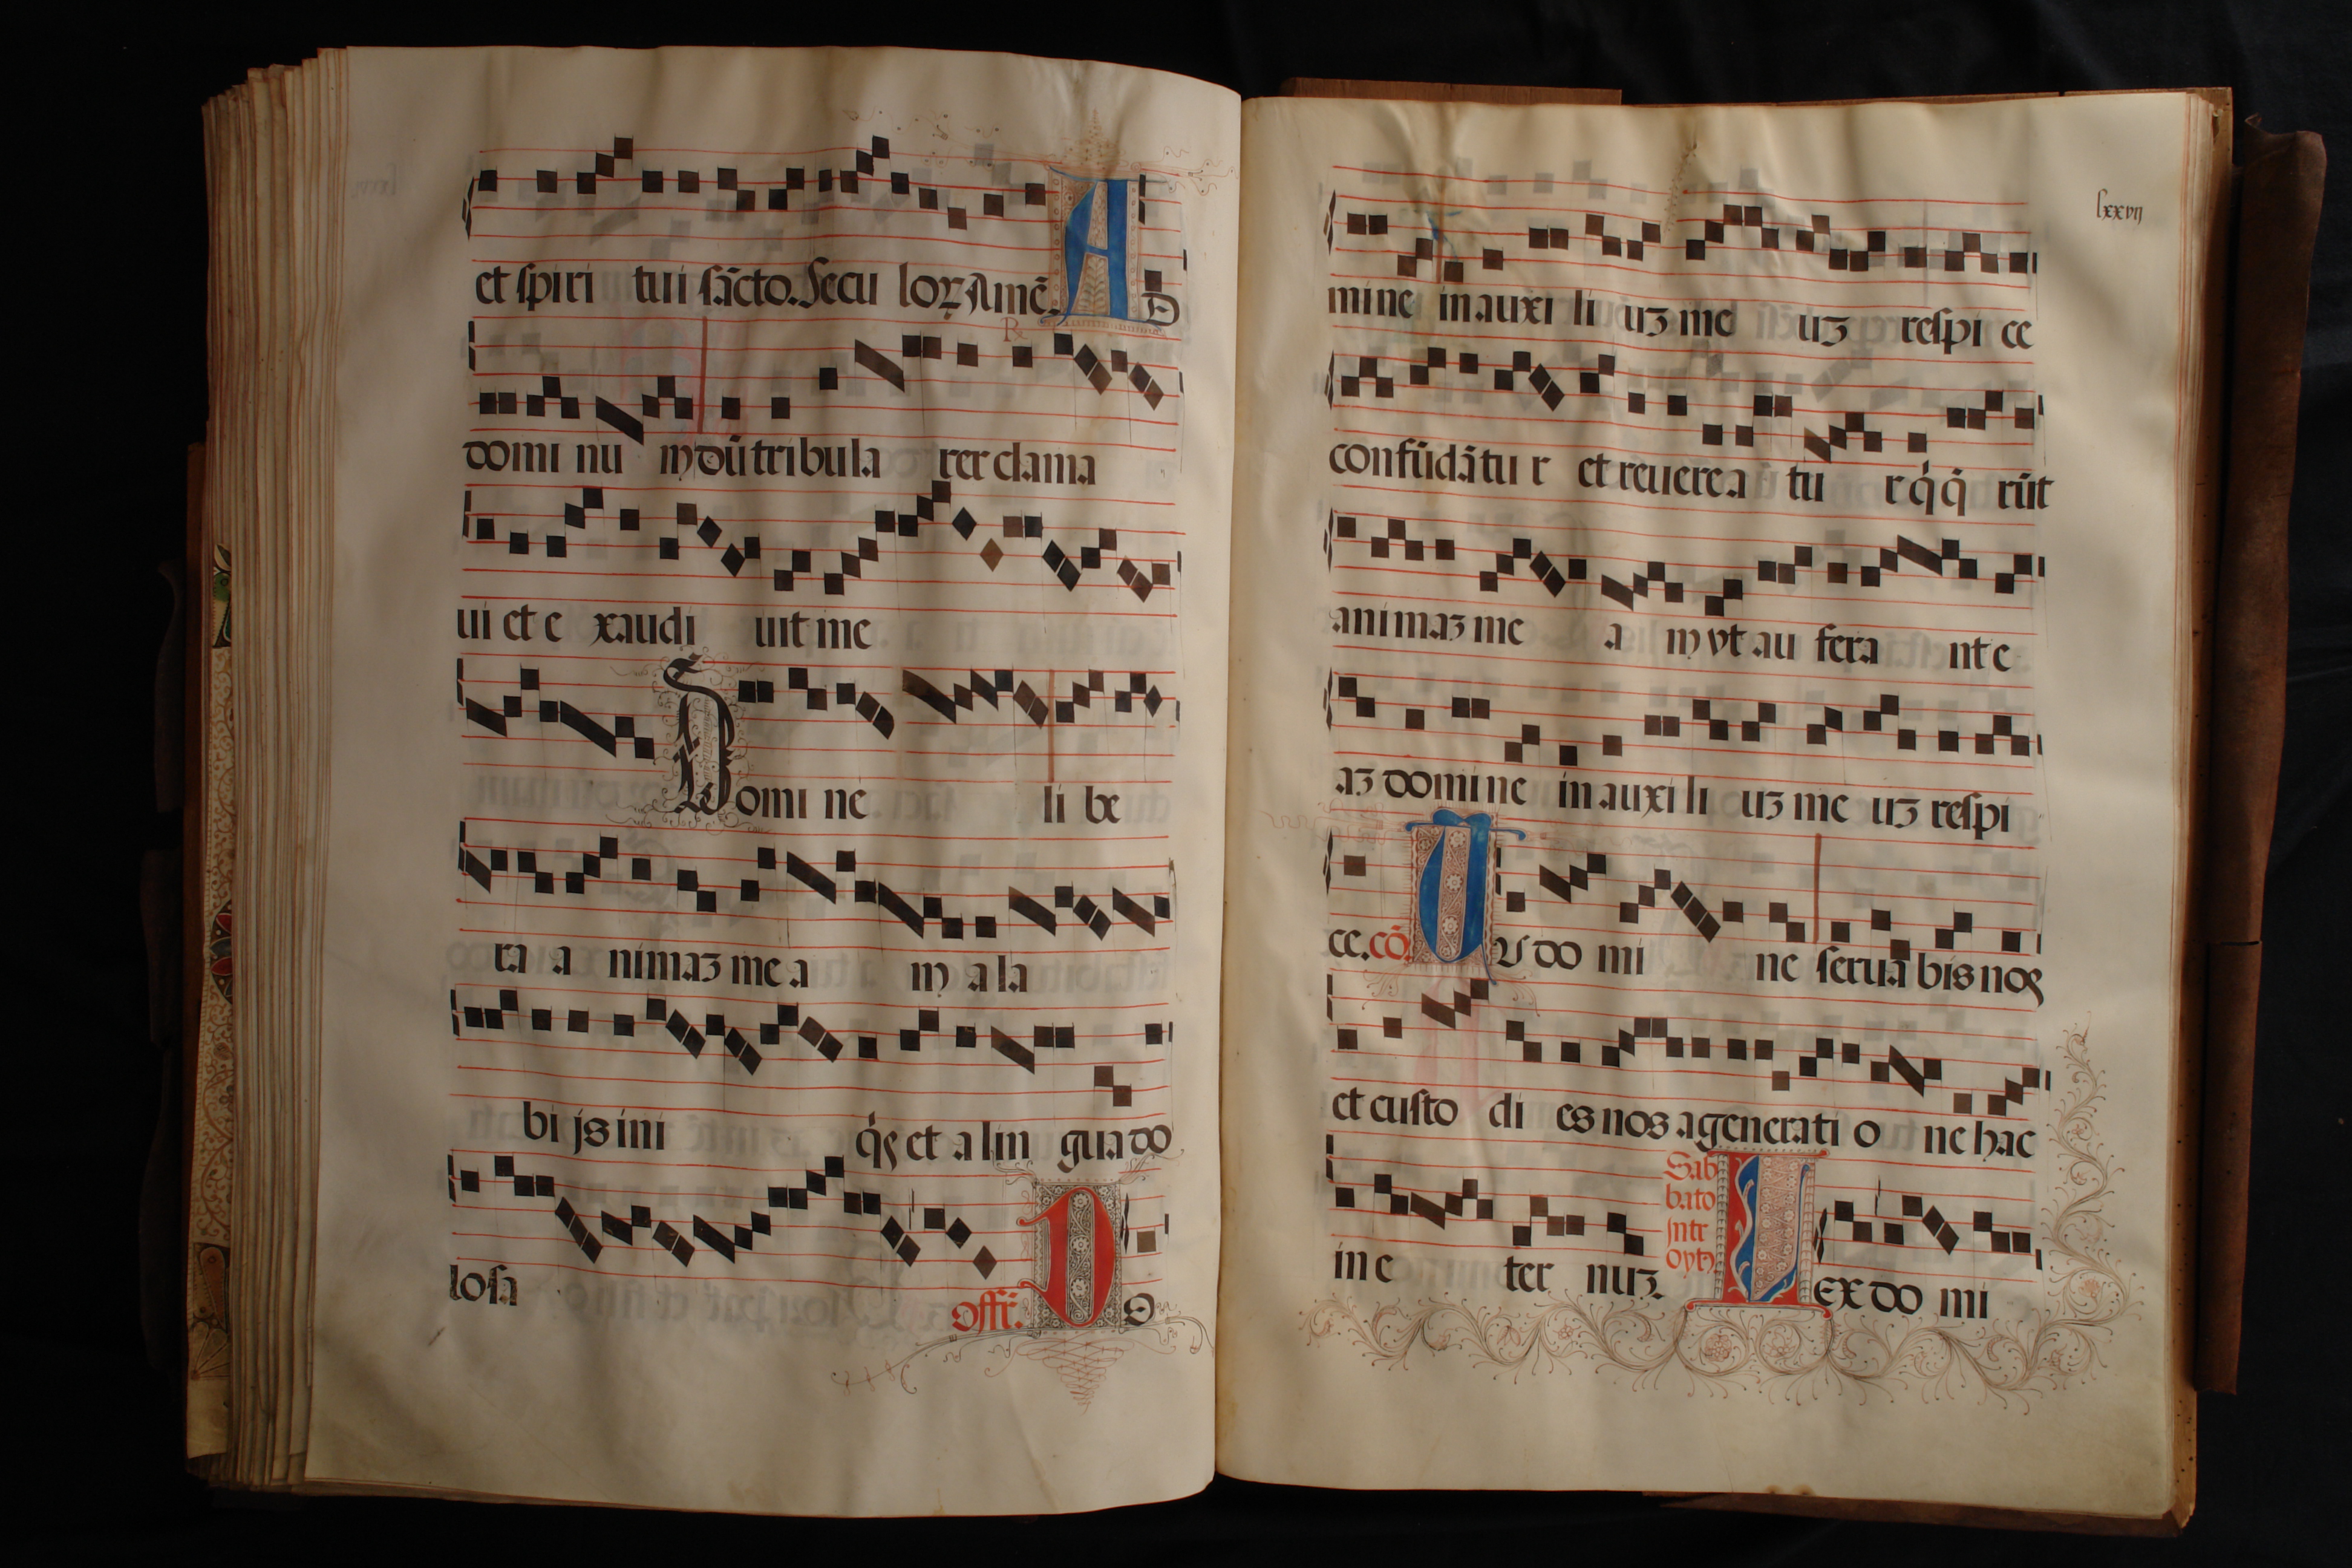 et spiri tui sācto. Secu loꝝ Amē. AD
℟
domi nu m dū tribula rer clama
ui et e xaudi uit me
Domi ne li be
ra a nimaʒ me a m a la
bi js ini q̇s et a lin gua do
losa Offr̄. DO
lxxvij
mine in auxi li uʒ me uʒ respi ce
confūdātu r et reuerea tu r q̇ q̄ rūt
animaʒ me a m vt au fera nt e
aʒ domi ne in auxi li uʒ me uʒ respi
ce. cō. TV do mi ne serua bis nos
et custo di es nos a generati o ne hac
in e ter nuʒ. Sab
bato
Intr
oytʒ
LEX do mi